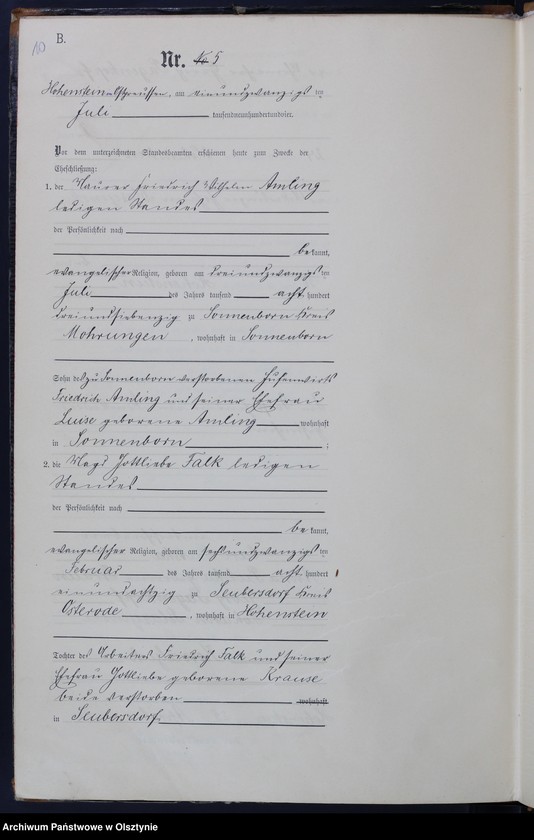 10
B.
Nr. 5
Hohenstein Ostpreussen, am einundzwanzigs ten
Juli tausendneunhundertundvier.
Vor dem unterzeichneten Standesbeamten erschienen heute zum Zwecke der
Eheschließung:
1. der Maurer Friedrich Wilhelm Amling
ledigen Standes
der Persönlichkeit nach
be kannt,
evangelischer Religion, geboren am dreiundzwanzigs ten
Juli des Jahres tausend acht hundert
dreiundsiebenzig zu Sonnenborn Kreis
Mohrungen, wohnhaft in Sonnenborn
Sohn des zu Sonnenborn verstorbenen Hufenwirts
Friedrich Amling und seiner Ehefrau
Luise geborene Amling wohnhaft
in Sonnenborn ;
2. die Magd Gottliebe Falk ledigen
Standes
der Persönlichkeit nach
be kannt,
evangelischer Religion, geboren am sechsundzwanzigs ten
Februar des Jahres tausend acht hundert
einundachtzig zu Seubersdorf Kreis
Osterode, wohnhaft in Hohenstein
Tochter des Arbeiters Friedrich Falk und seiner
Ehefrau Gottliebe geborene Krause
beide verstorben wohnhaft
in Seubersdorf
Archiwum Państwowe w Olsztynie